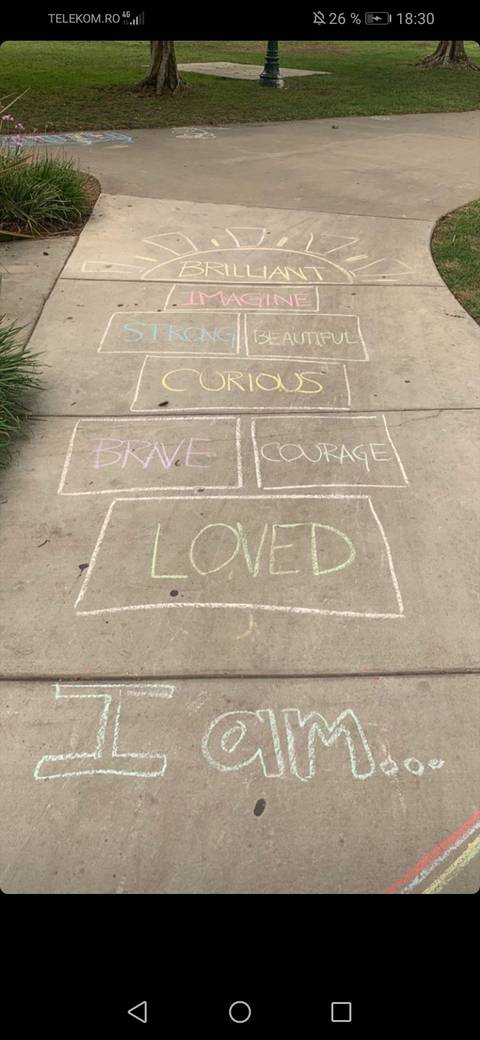 TELEKOM.RO 4G 26 % 18:30
BRILLIANT
IMAGINE
STRONG BEAUTIFUL
CURIOUS
BRAVE COURAGE
LOVED
I am...